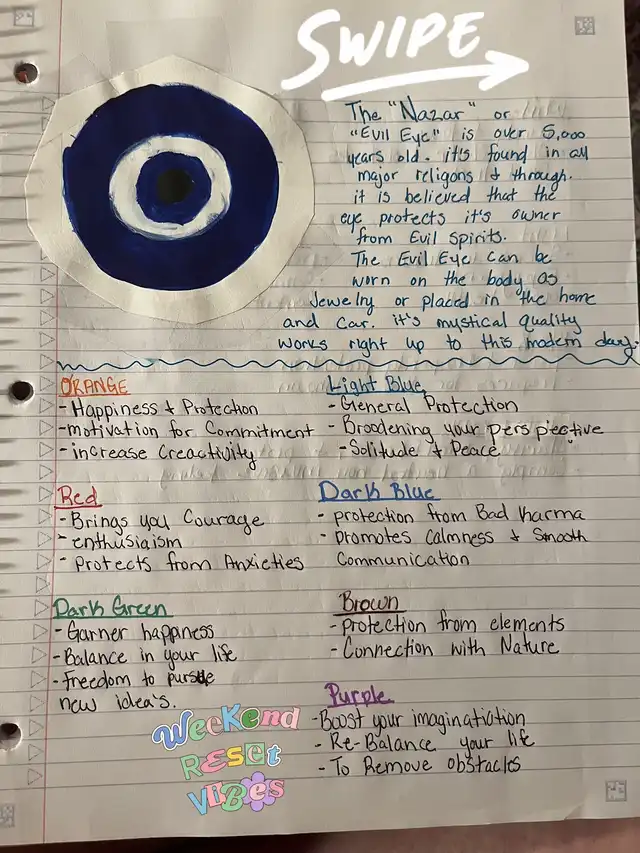 SWIPE
The "Nazar" or
"Evil Eye" is over 5,000
years old. it's found in all
major religons & through.
it is believed that the
eye protects it's owner
from Evil spirits.
The Evil Eye can be
worn on the body as
Jewelry or placed in the home
and car. it's mystical quality
works right up to this modern day.
ORANGE
- Happiness & Protection
- motivation for Commitment
- increase Creactivity
Light Blue
- General Protection
- Broodening your perspective
- Solitude & Peace
Red
- Brings you Courage
- enthusiaism
- Protects from Anxieties
Dark Blue
- protection from Bad Kharma
- promotes Calmness & Smooth
Communication
Dark Green
- Garner happiness
- Balance in your life
- freedom to pursue
new idea's.
Brown
- protection from elements
- Connection with Nature
Purple
- Boost your imaginatiction
- Re-Balance your life
- To Remove obstacles
Weekend
RESET
VIBES